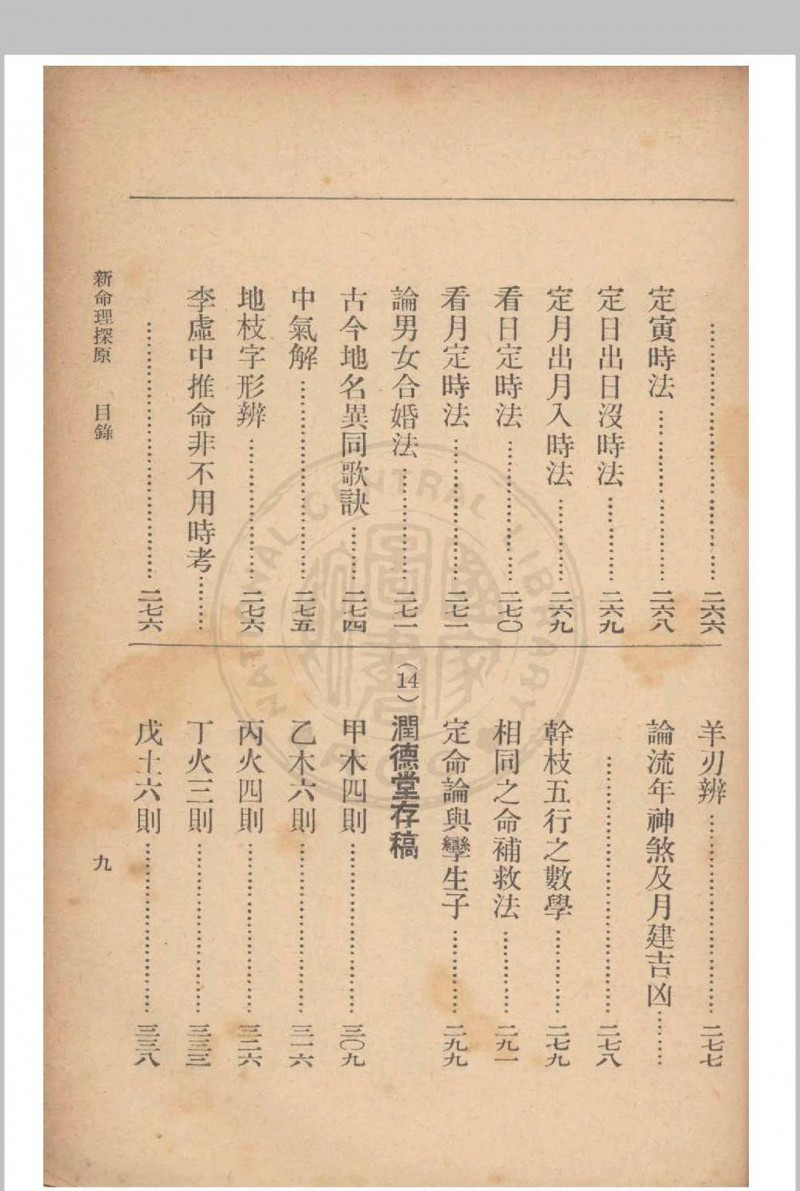 ……………………………二六六
定寅時法…………………二六八
定日出日沒時法…………二六九
定月出月入時法…………二六九
看日定時法………………二七〇
看月定時法………………二七一
論男女合婚法……………二七一
古今地名異同歌訣………二七四
中氣解……………………二七五
地枝字形辨………………二七六
李虛中推命非不用時考………
……………………………二七六
羊刃辨……………………二七七
論流年神煞及月建吉凶………
……………………………二七八
幹枝五行之數學…………二七九
相同之命補救法…………二九一
定命論與孿生子…………二九九
(14)潤德堂存稿
甲木四則…………………三〇九
乙木六則…………………三一六
丙火四則…………………三二六
丁火三則…………………三三三
戊土六則…………………三三八
新命理探原 目錄
九
NATIONAL CENTRAL LIBRARY
國家圖書館